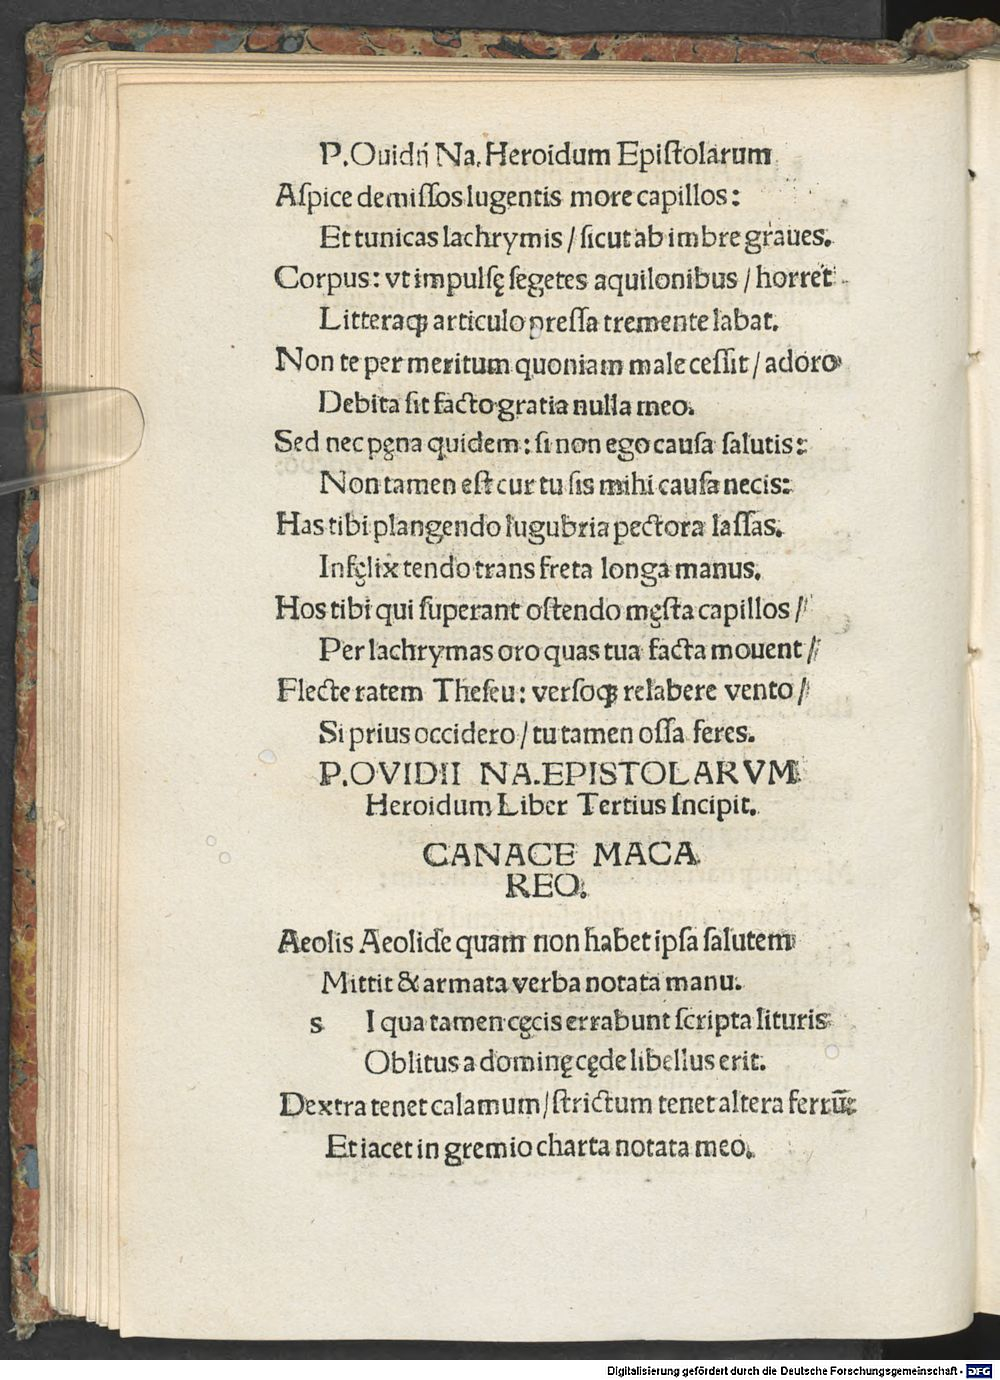 P.Ouidii Na. Heroidum Epiſtolarum
Aſpice demiſſos lugentis more capillos:
Et tunicas lachrymis / ſicut ab imbre graues.
Corpus: vt impulſę ſegetes aquilonibus / horret
Litteraqꝫ articulo preſſa tremente labat.
Non te per meritum quoniam male ceſſit / adoro
Debita ſit facto gratia nulla meo.
Sed nec pęna quidem: ſi non ego cauſa ſalutis:
Non tamen eſt cur tu ſis mihi cauſa necis:
Has tibi plangendo lugubria pectora laſſas.
Infęlix tendo trans freta longa manus.
Hos tibi qui ſuperant oſtendo męſta capillos /
Per lachrymas oro quas tua facta mouent /
Flecte ratem Theſeu: verſoqꝫ relabere vento /
Si prius occidero / tu tamen oſſa feres.
P.OVIDII NA.EPISTOLARVM
Heroidum Liber Tertius Incipit.
CANACE MACA
REO.
Aeolis Aeolidę quam non habet ipſa ſalutem
Mittit & armata verba notata manu.
s I qua tamen cęcis errabunt ſcripta lituris
Oblitus a dominę cęde libellus erit.
Dextra tenet calamum / ſtrictum tenet altera ferrū:
Et iacet in gremio charta notata meo.
Digitalisierung gefördert durch die Deutsche Forschungsgemeinschaft - DFG